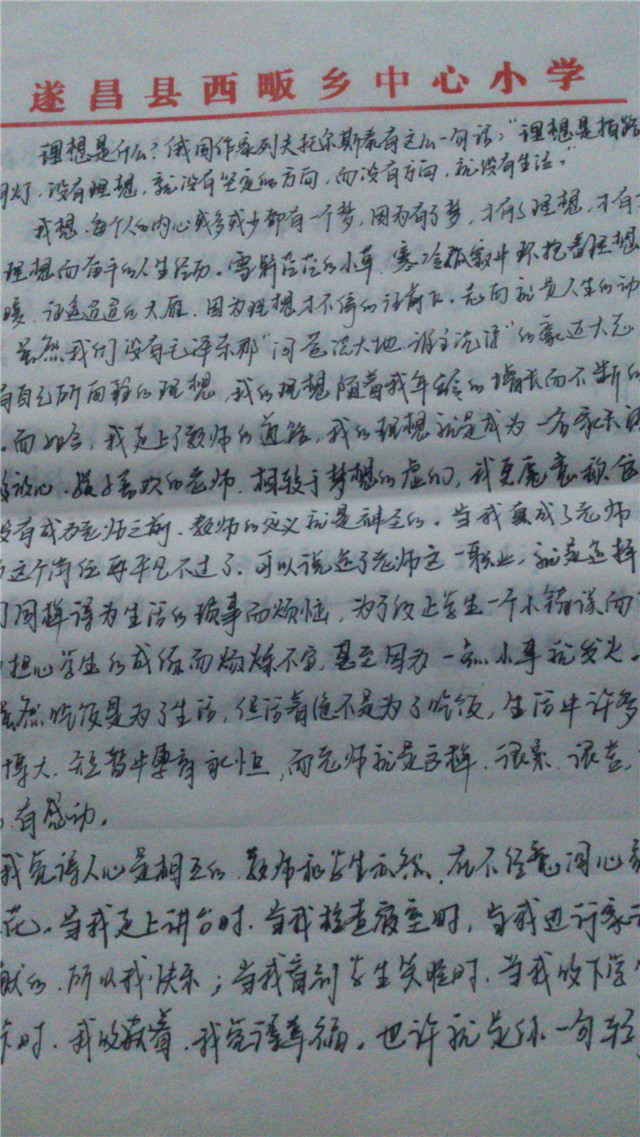 遂昌县西畈乡中心小学
理想是什么?俄国作家列夫托尔斯泰有这么一句话:"理想是指路
明灯,没有理想,就没有坚定的方向,而没有方向,就没有生活。"
我想,每个人的内心或多或少都有一个梦,因为有了梦,才有了理想,才有
理想而奋斗的人生经历。雪野茫茫的小草,寒冷孤寂中环抱着理想
暖,征途迢迢的大雁,因为理想才不停的往前飞。志向就是人生的动
虽然我们没有毛泽东那"问苍茫大地,谁主沉浮"的豪迈大志
有自己所向往的理想,我的理想随着我年龄的增长而不断的
。而如今,我走上了教师的道路,我的理想就是成为一名家长
放心,孩子喜欢的老师,相较于梦想的虚幻,我更愿意称
没有成为老师之前,教师的定义就是神圣的。当我真成了老师
这个岗位再平凡不过了,可以说选了老师这一职业,就是选择
们同样得为生活的琐事而烦恼,为了纠正学生一个小错误而
担心学生的成绩而烦燥不安,甚至因为一点小事就发火。
虽然吃饭是为了生活,但活着绝不是为了吃饭,生活中许多
博大,短暂中孕育永恒,而老师就是这样,很累,很苦,
,有感动。
我觉得人心是相互的,教师和学生亦然,在不经意间心
花。当我走上讲台时,当我检查寝室时,当我进行家
献的,所以我快乐;当我看到学生笑脸时,当我收下学
卡时,我收获着,我觉得幸福。也许就是你一句轻